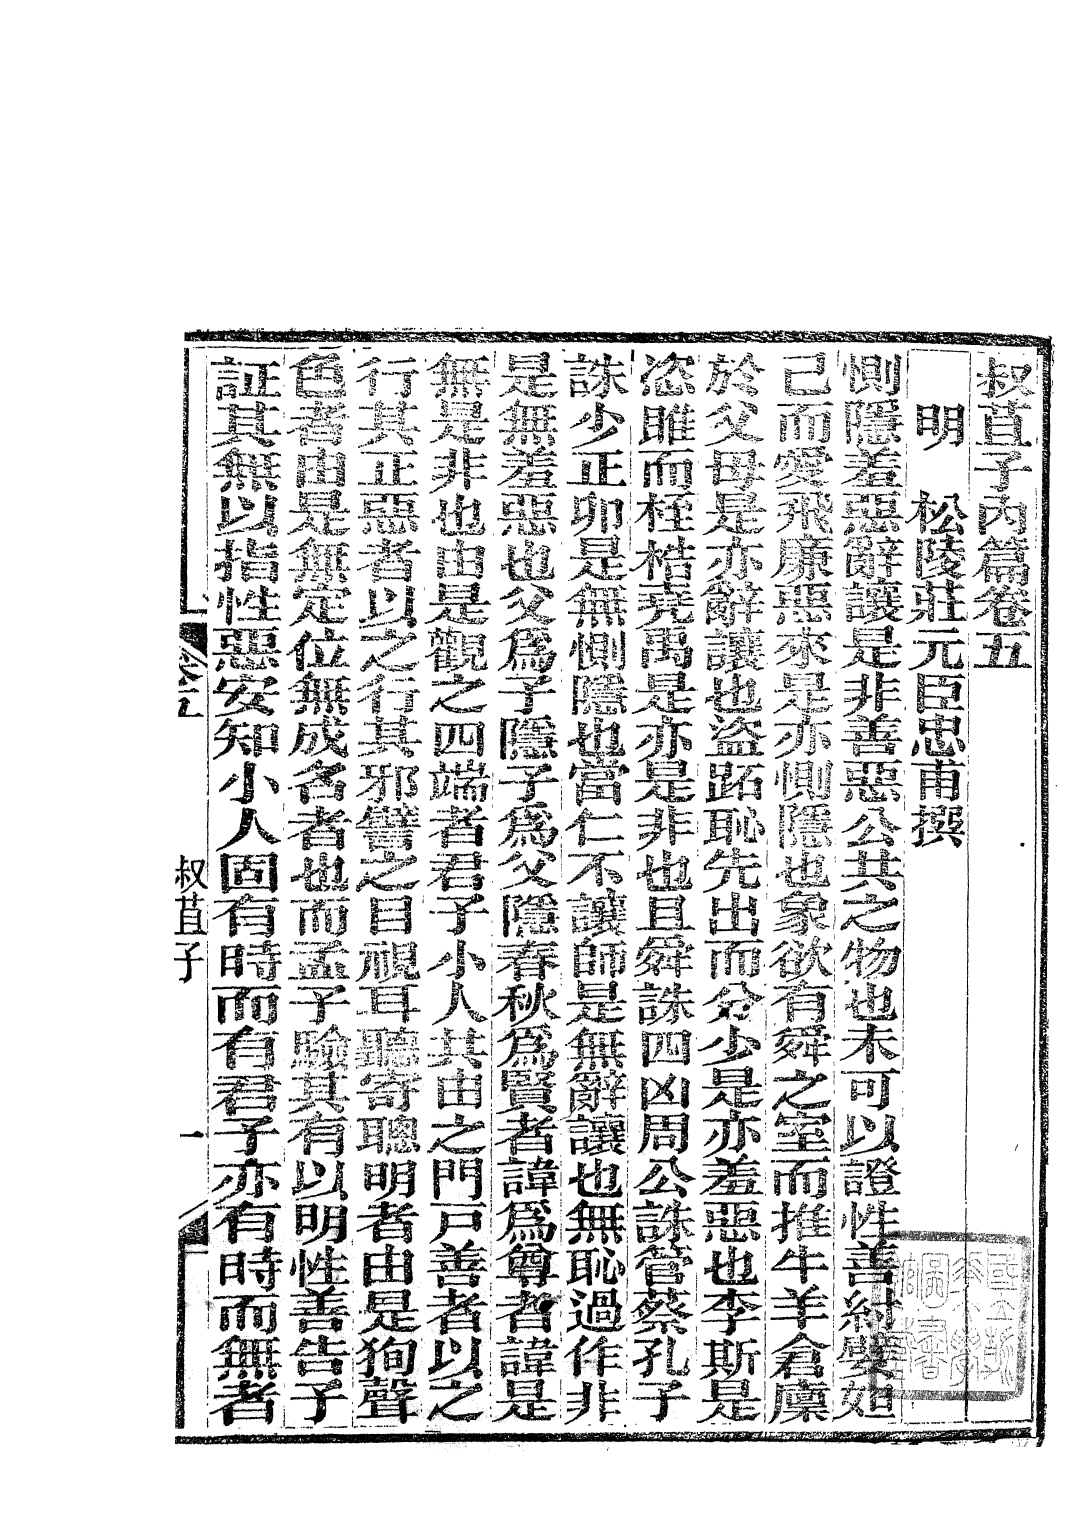 叔苴子內篇卷五
明　松陵莊元臣忠甫撰
惻隱羞惡辭讓是非善惡公共之物也未可以證性善紂嬖妲
己而愛飛廉惡來是亦惻隱也象欲有舜之室而推牛羊倉廩
於父母是亦辭讓也盜跖恥先出而分少是亦羞惡也李斯是
恣雎而桎梏堯禹是亦是非也且舜誅四凶周公誅管蔡孔子
誅少正卯是無惻隱也當仁不讓師是無辭讓也無恥過作非
是無羞惡也父爲子隱子爲父隱春秋爲賢者諱爲尊者諱是
無是非也由是觀之四端者君子小人共由之門戸善者以之
行其正惡者以之行其邪譬之目視耳聽寄聰明者由是狥聲
色者由是無定位無成名者也而孟子驗其有以明性善告子
証其無以指性惡安知小人固有時而有君子亦有時而無者
卷五
叔苴子
一